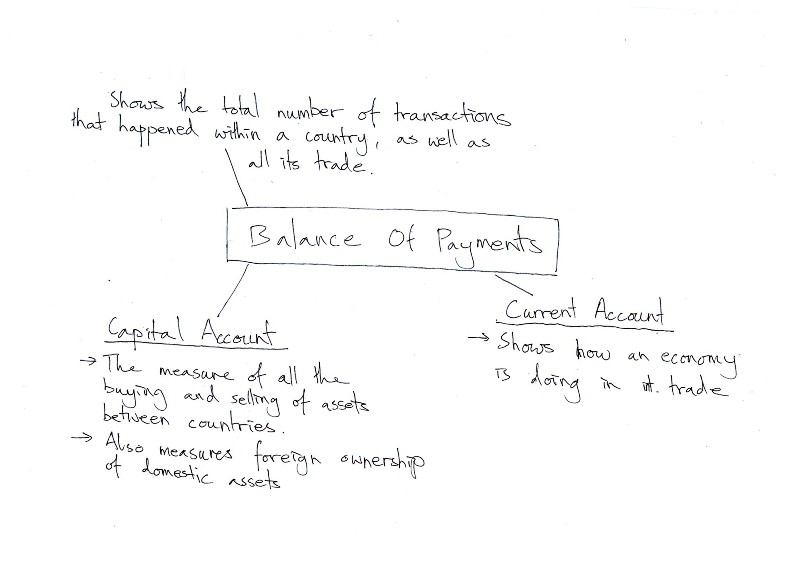 Shows the total number of transactions
that happened within a country, as well as
all its trade.
Balance Of Payments
Capital Account
→ The measure of all the
buying and selling of assets
between countries.
→ Also measures foreign ownership
of domestic assets
Current Account
→ Shows how an economy
is doing in int. trade